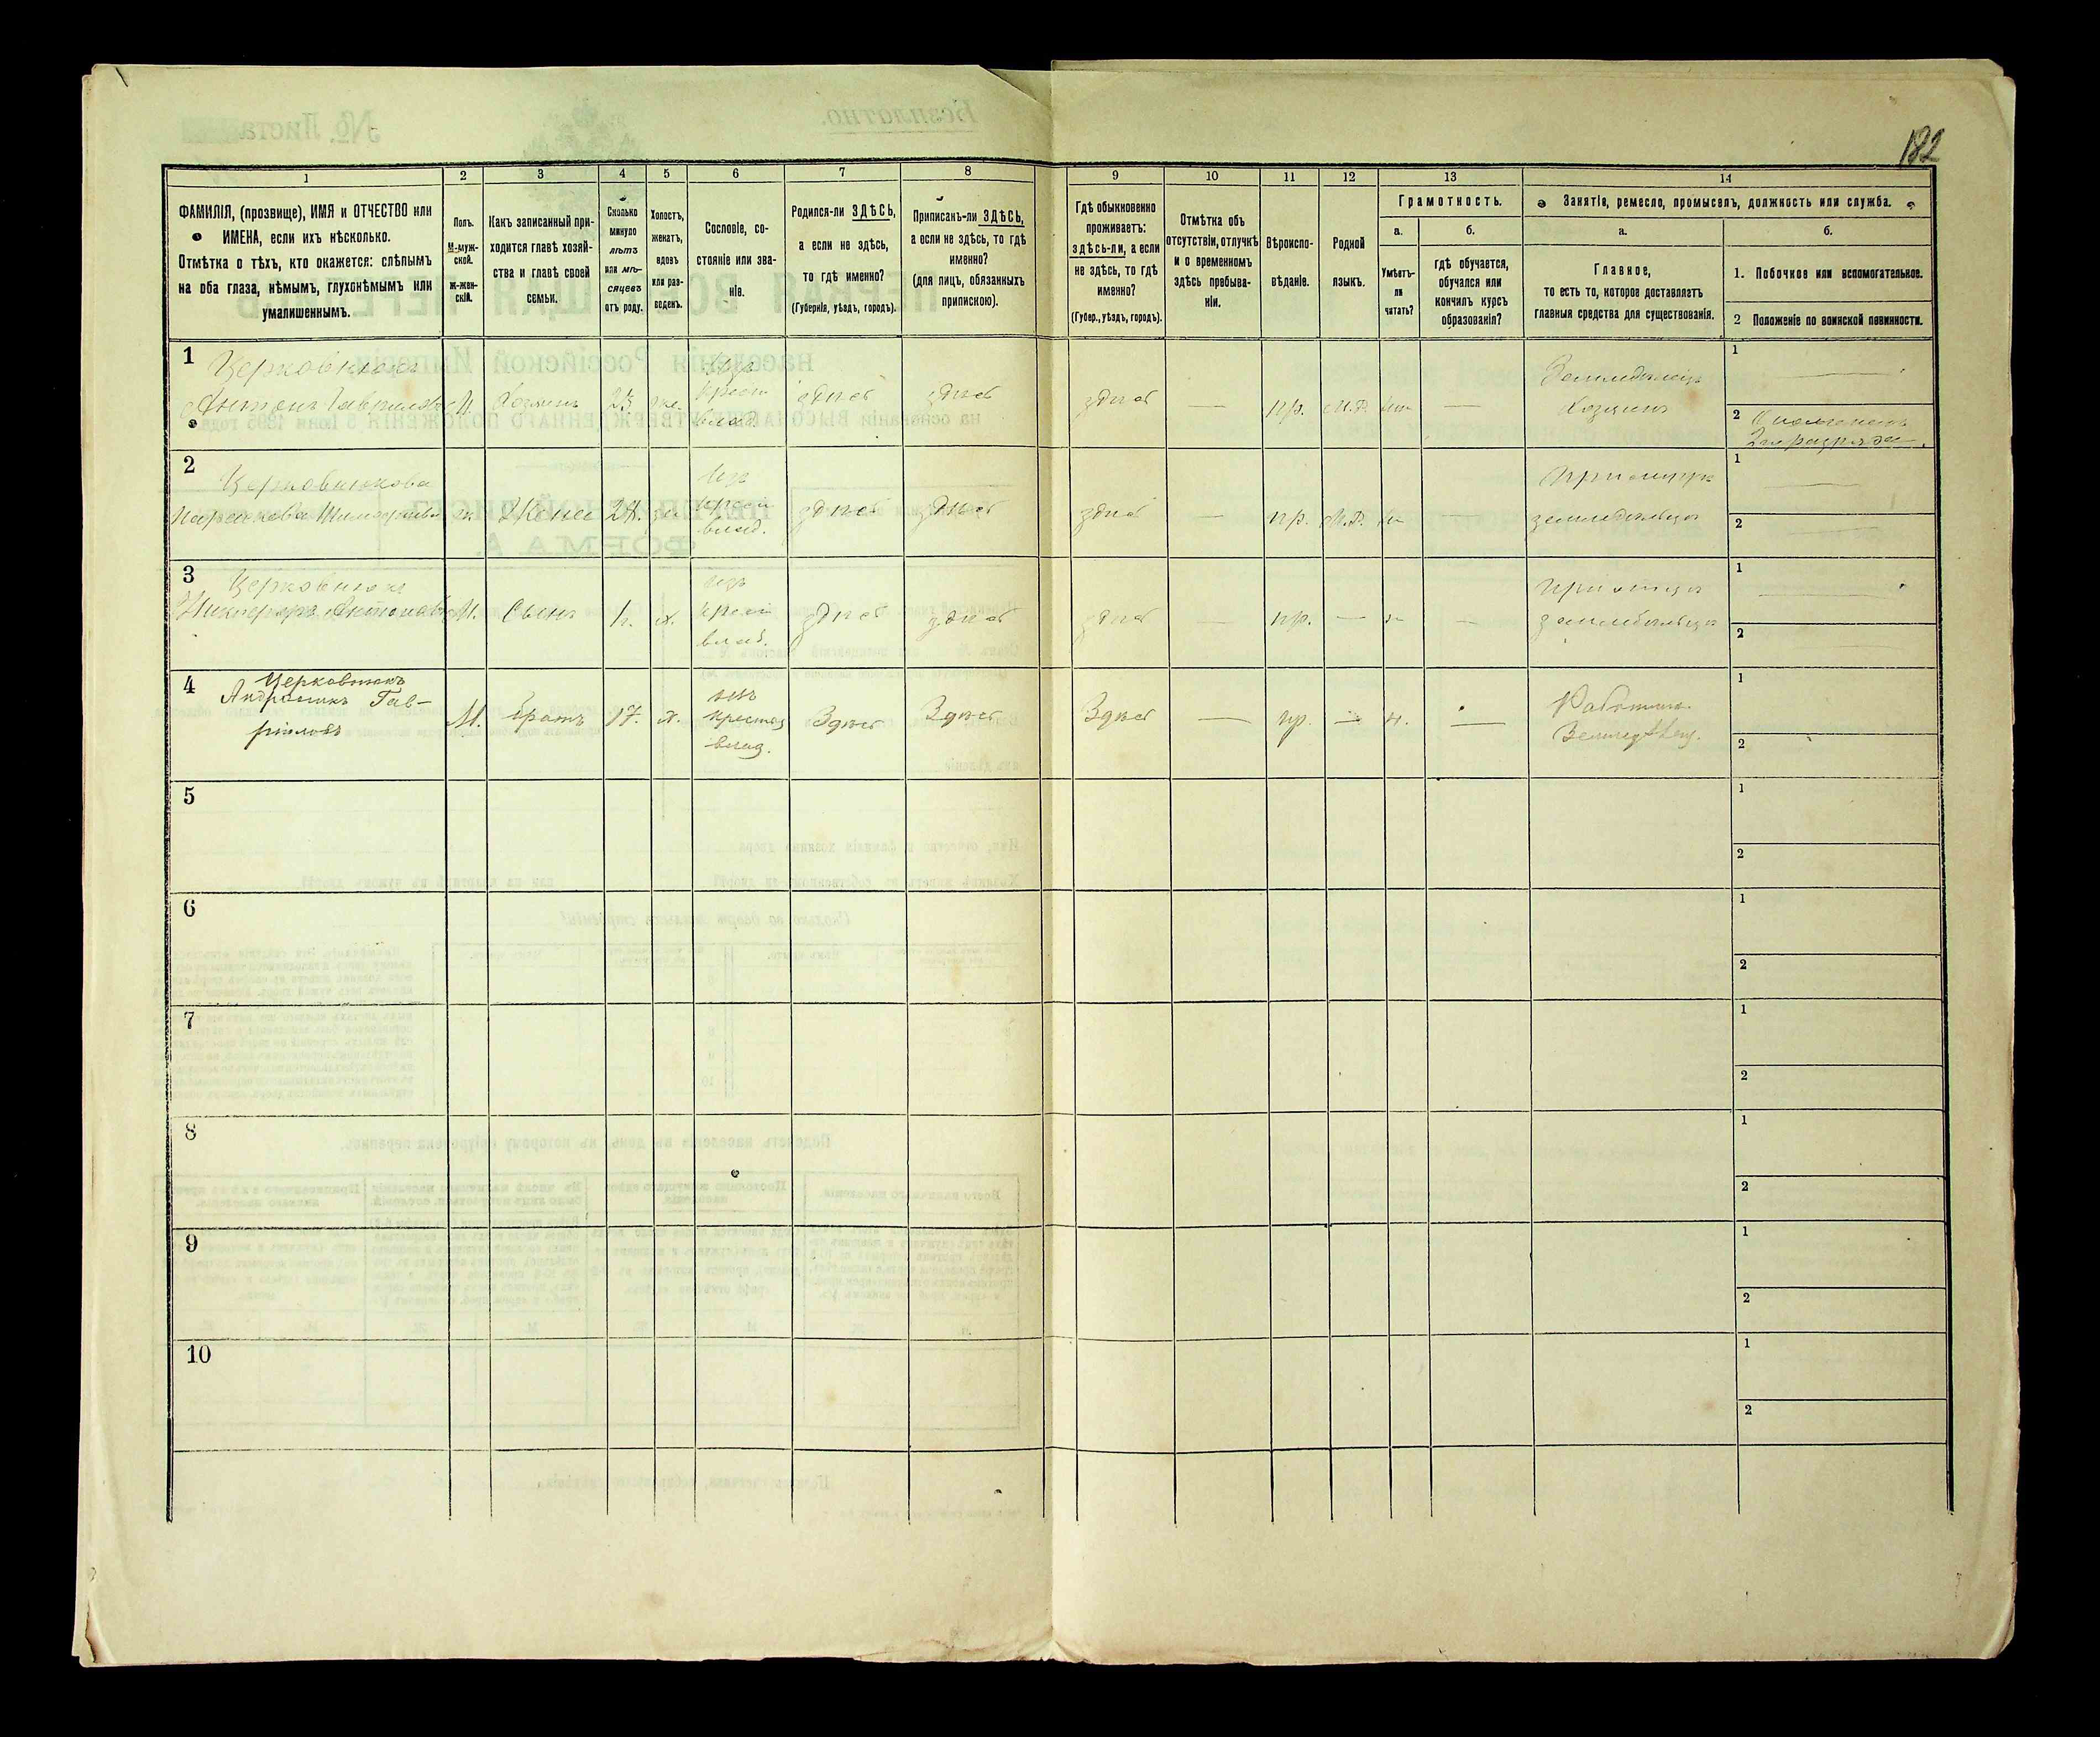 182
1 2 3 4 5 6 7 8 9 10 11 12 13 14
ФАМИЛІЯ, (прозвище), ИМЯ и ОТЧЕСТВО или
ИМЕНА, если ихъ нѣсколько.
Отмѣтка о тѣхъ, кто окажется: слѣпымъ
на оба глаза, нѣмымъ, глухонѣмымъ или
умалишеннымъ.
Полъ.
М-муж-
ской.
Ж-жен-
скій.
Какъ записанный при-
ходится главѣ хозяй-
ства и главѣ своей
семьи.
Сколько
минуло
лѣтъ
или мѣ-
сяцевъ
отъ роду.
Холостъ,
женатъ,
вдовъ
или раз-
веденъ.
Сословіе, со-
стояніе или зва-
ніе.
Родился-ли ЗДѢСЬ,
а если не здѣсь,
то гдѣ именно?
(Губернія, уѣздъ, городъ).
Приписанъ-ли ЗДѢСЬ,
а если не здѣсь, то гдѣ
именно?
(для лицъ, обязанныхъ
припискою).
Гдѣ обыкновенно
проживаетъ:
здѣсь-ли, а если
не здѣсь, то гдѣ
именно?
(Губер., уѣздъ, городъ).
Отмѣтка объ
отсутствіи, отлучкѣ
и о временномъ
здѣсь пребыва-
ніи.
Вѣроиспо-
вѣданіе.
Родной
языкъ.
Грамотность.
а.
Умѣетъ-
ли
читать?
б.
гдѣ обучается,
обучался или
кончилъ курсъ
образованія?
Занятіе, ремесло, промыселъ, должность или служба.
а.
Главное,
то есть то, которое доставляетъ
главныя средства для существованія.
б.
1. Побочное или вспомогательное.
2 Положеніе по воинской повинности.
1
Церковнюкъ
Антонъ Гавриловъ
М.
Хозяинъ
жен.
Изъ
крест.
влад.
здѣсь
здѣсь
здѣсь
—
пр.
М.Р.
—
Земледѣлецъ
хозяинъ
1 —
2
2
Церковнюкова
Параскева
Жена
Изъ
крест.
влад.
здѣсь
здѣсь
здѣсь
—
пр.
М.Р.
—
земледѣльца
1 —
2 —
3
Церковнюкъ
Никифоръ Антоновъ
М.
Сынъ
1г.
х.
изъ
крест.
влад.
здѣсь
здѣсь
здѣсь
—
пр.
—
н
—
при отцѣ
земледѣльца
1 —
2 —
4
Церковнюкъ
Андроникъ Гав-
риловъ
М.
братъ
17.
х.
изъ
крестья
влад.
Здѣсь
Здѣсь
Здѣсь
—
пр.
—
н.
—
1
2
5
1
2
6
1
2
7
1
2
8
1
2
9
1
2
10
1
2